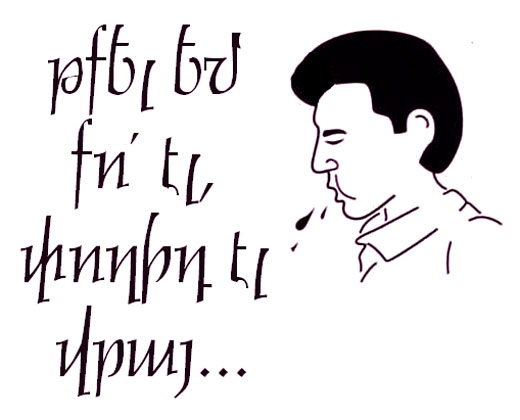 թքել եմ
քո՛ էլ,
փողիդ էլ
վրայ...